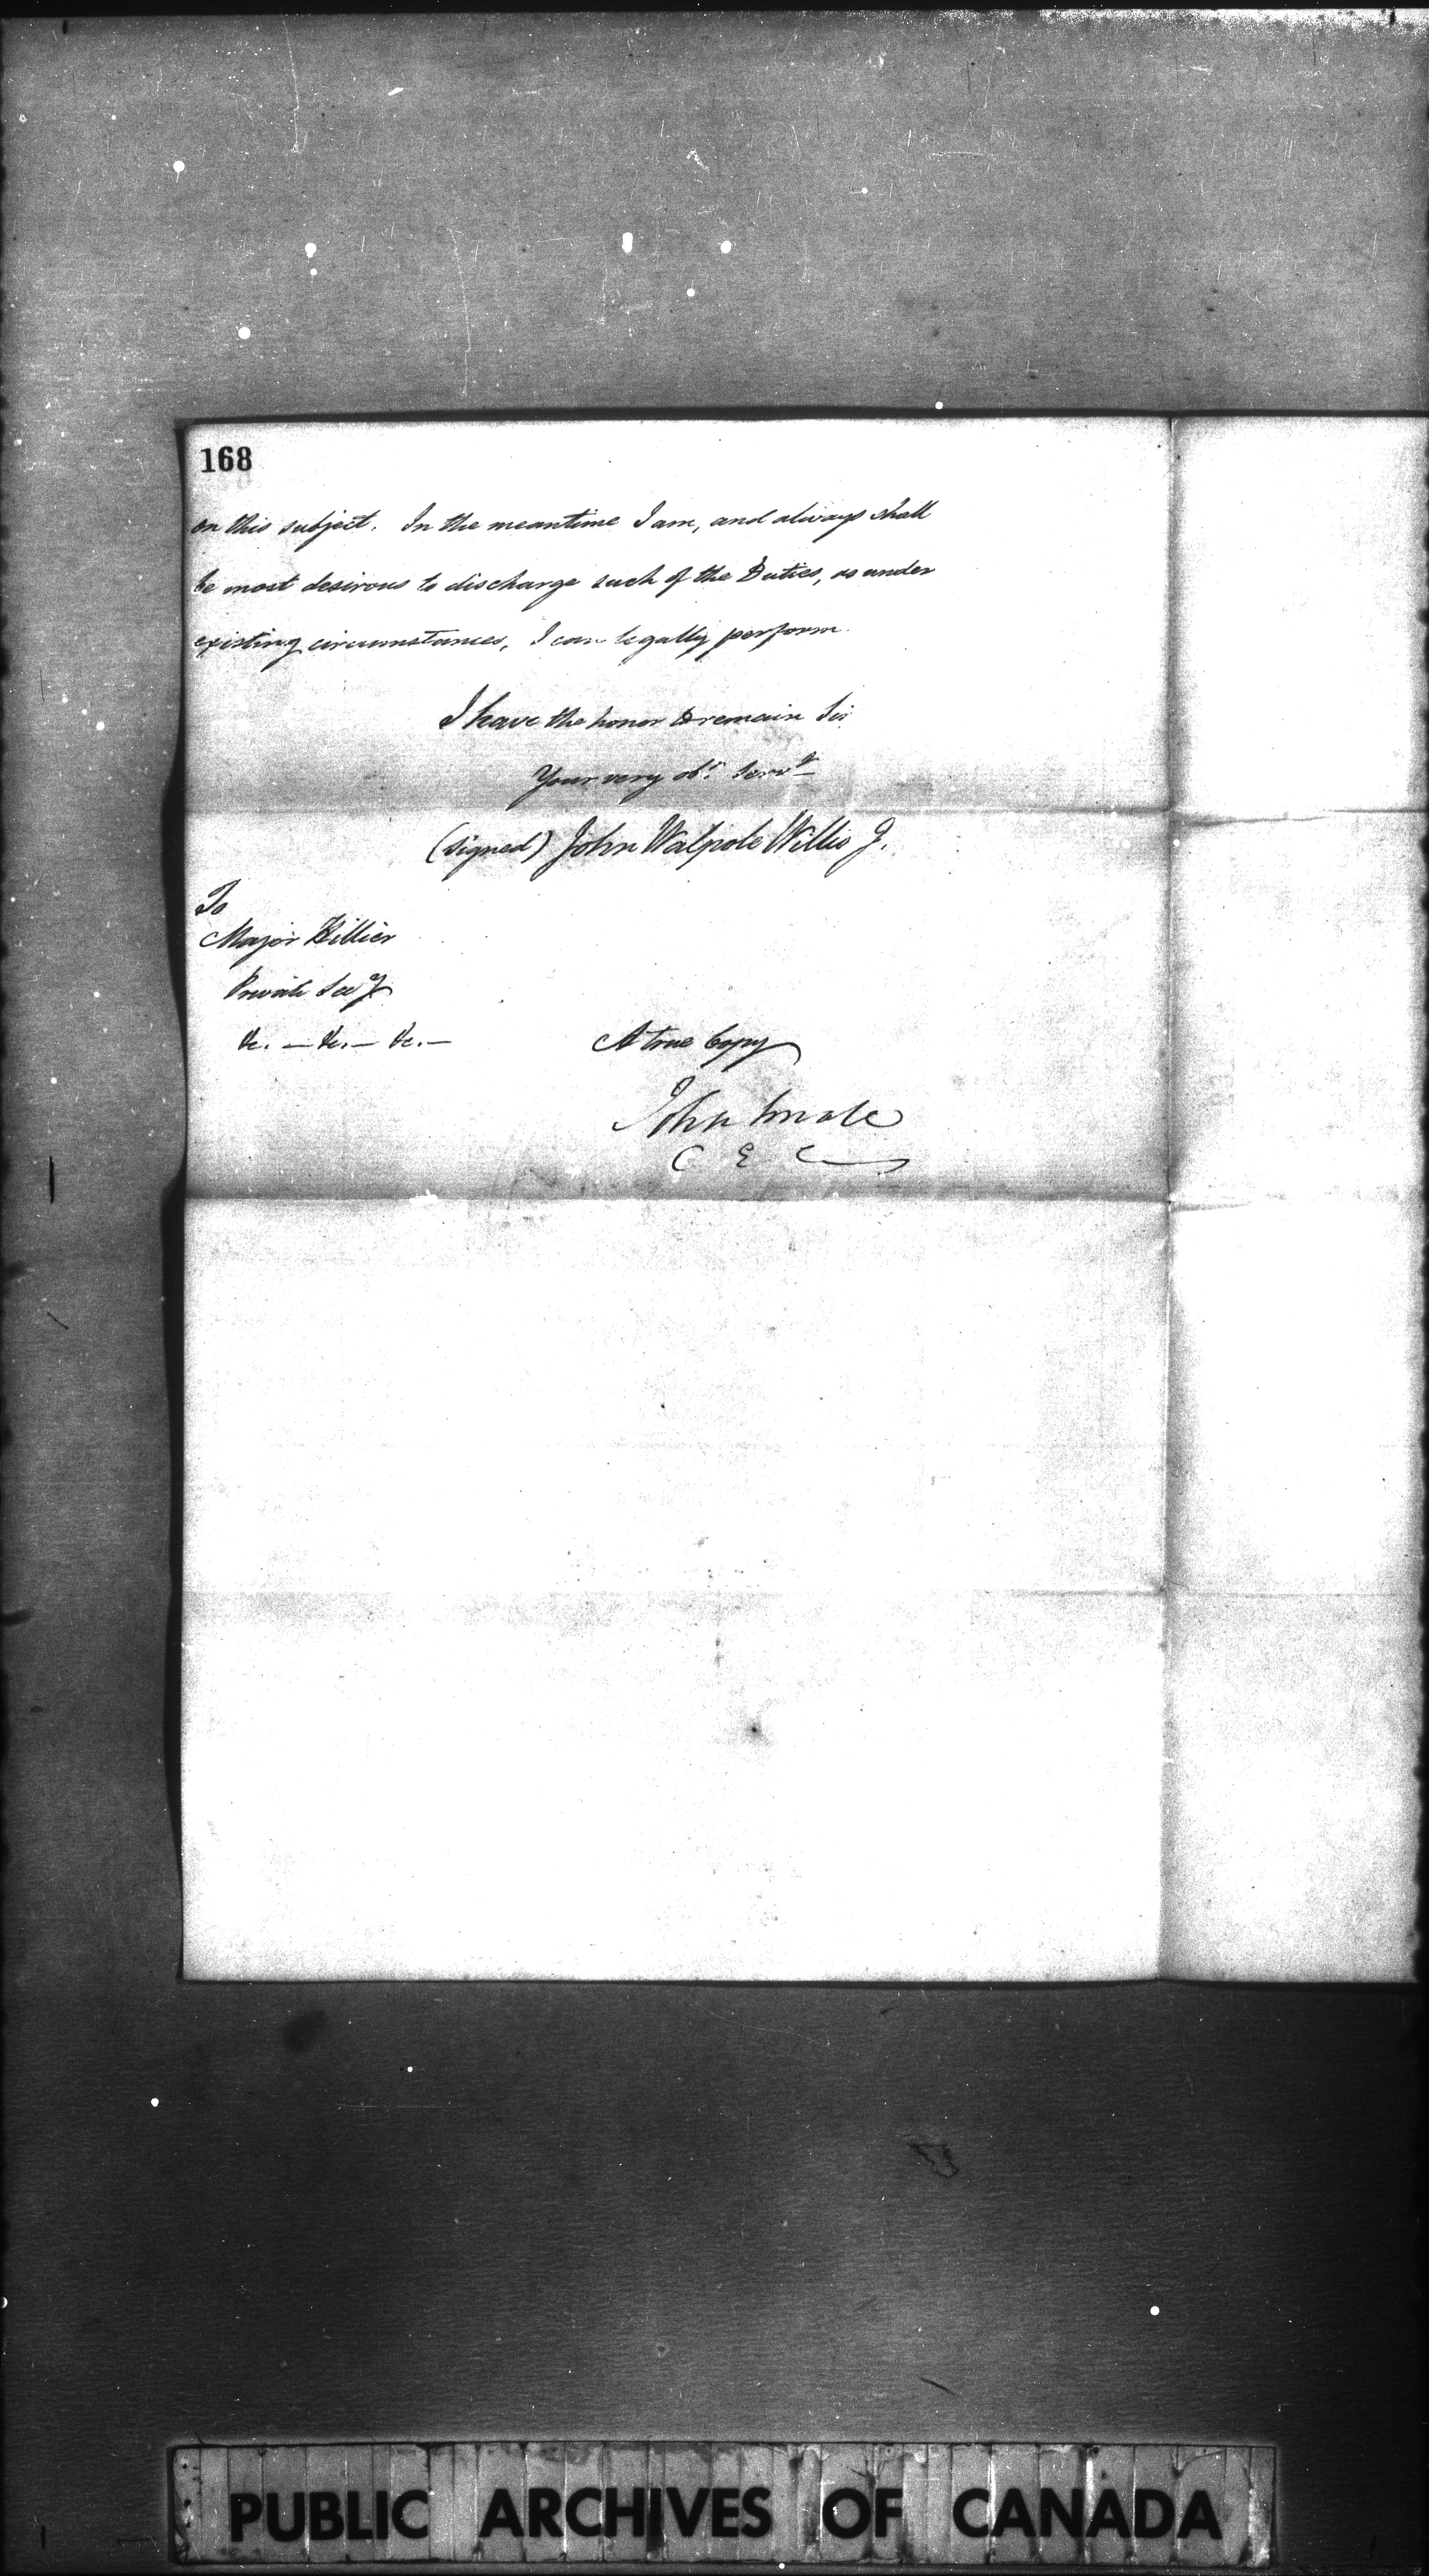 168
on this subject. In the meantime I am, and always shall
be most desirous to discharge such of the Duties, as under
existing circumstances, I can legally perform.
I have the honor to remain Sir
Your very obt. Servt
(signed) John Walpole Willis J.
To
Major Hillier
Private Secy
&c. — &c. — &c. —
A true Copy
John
C E C
PUBLIC ARCHIVES OF CANADA